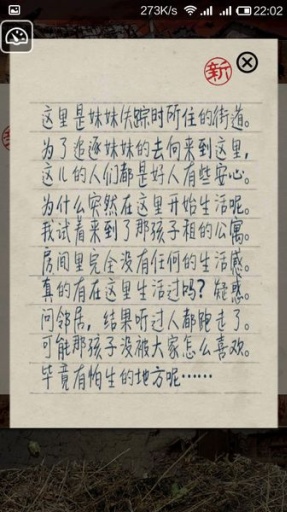 273K/s 22:02
新
这里是妹妹失踪时所住的街道。
为了追逐妹妹的去向来到这里，
这儿的人们都是好人有些安心。
为什么突然在这里开始生活呢。
我试着来到了那孩子租的公寓。
房间里完全没有任何的生活感。
真的有在这里生活过吗？疑惑。
问邻居，结果听过人都跑走了。
可能那孩子没被大家怎么喜欢。
毕竟有怕生的地方呢……